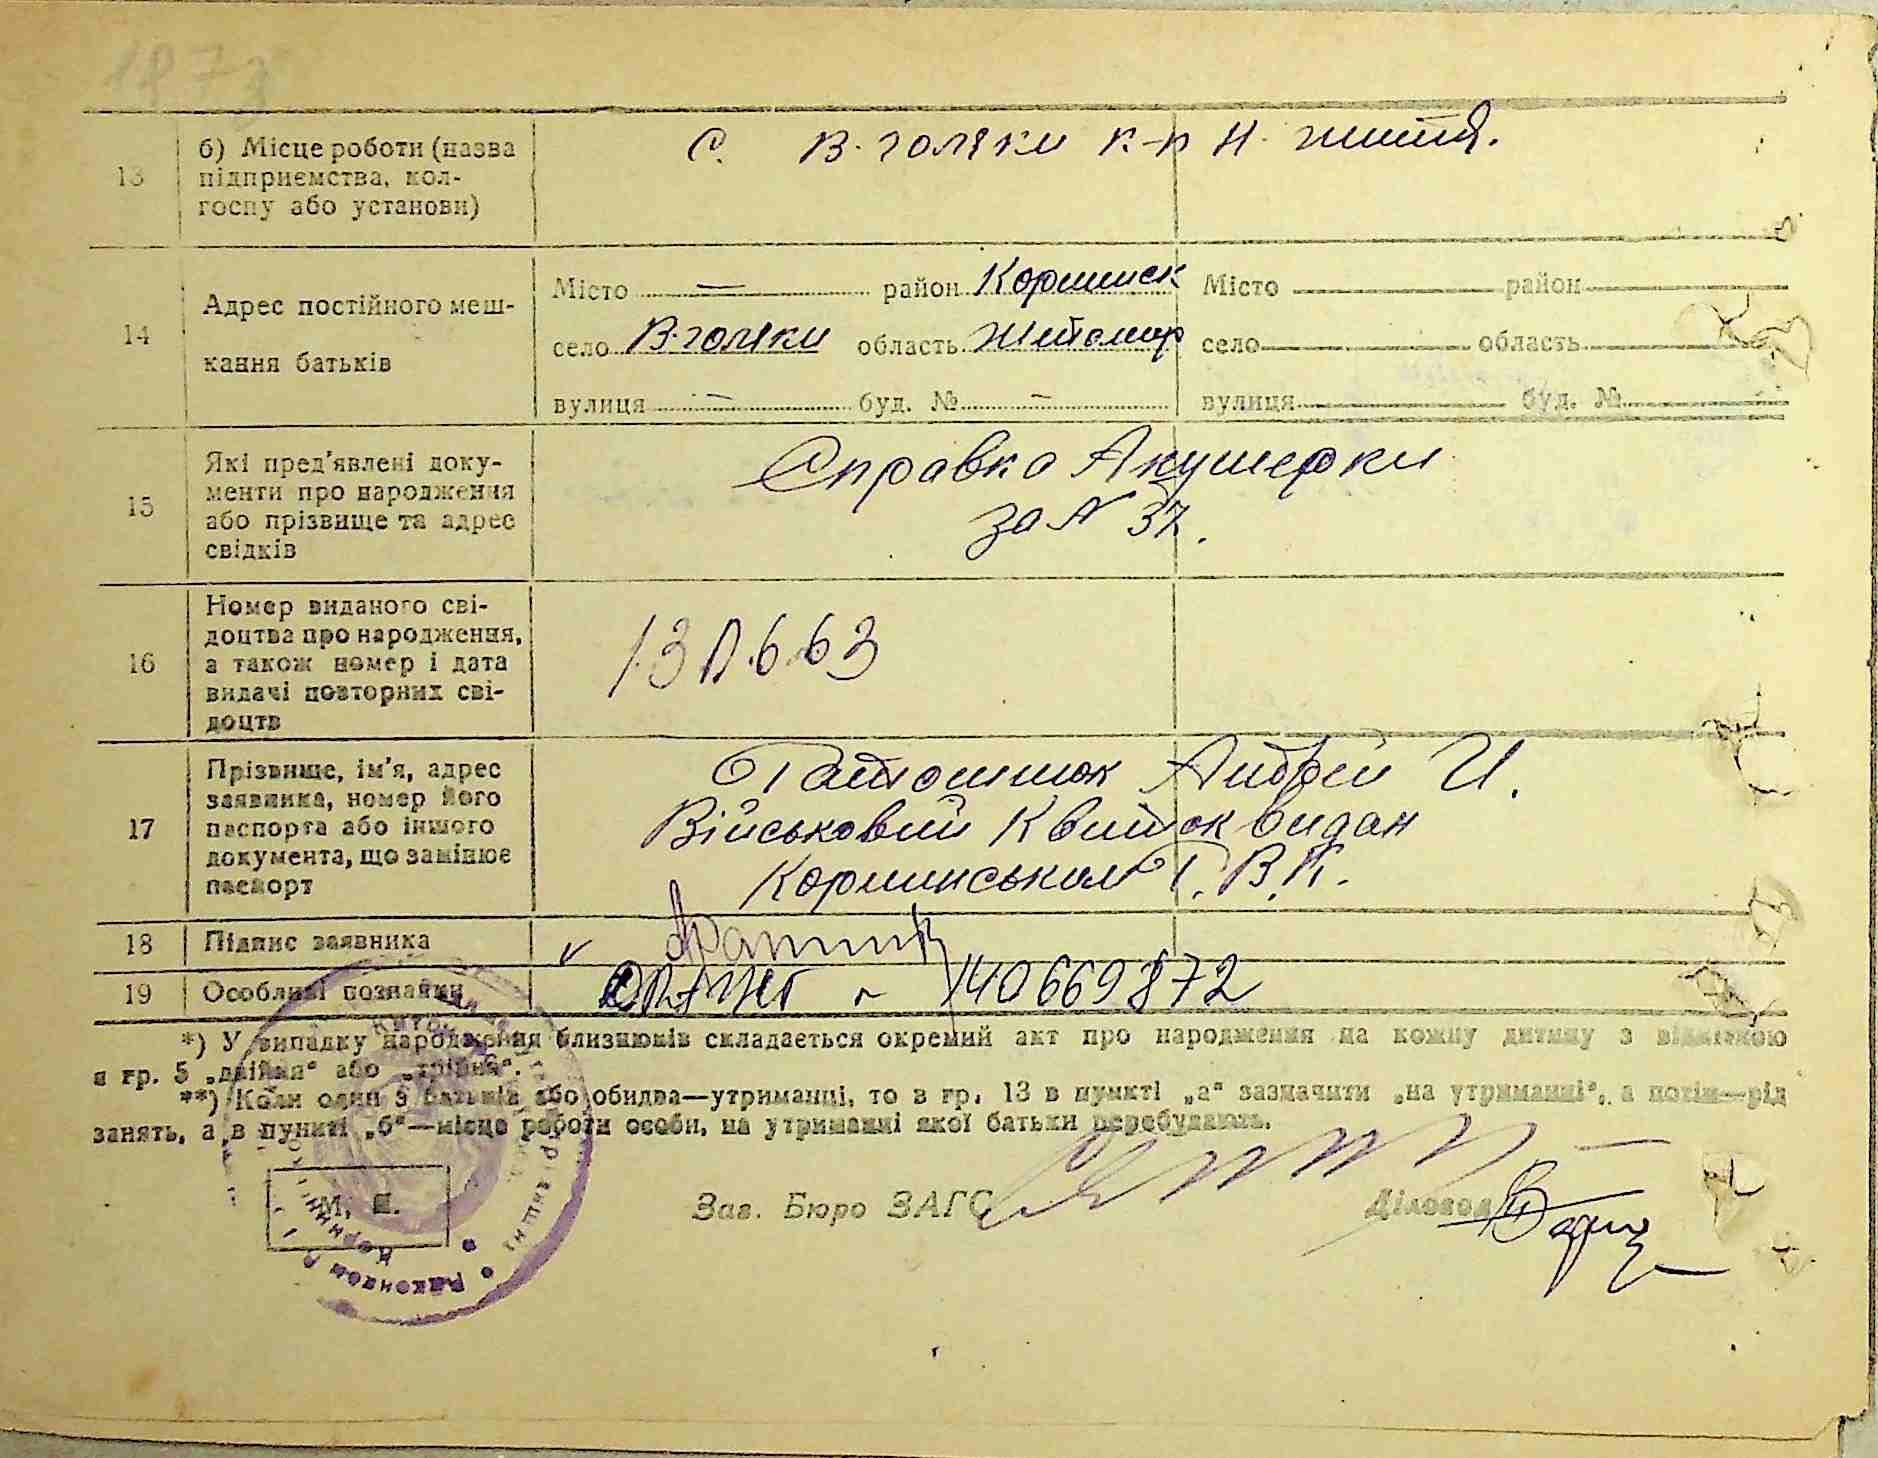 13 б) Місце роботи (назва
підприємства, кол-
госпу або установи)
С. В-голяки к-п Н. життя.
14 Адрес постійного меш-
кання батьків
Місто — район Коршинск Місто район
село В-голяки область Житомир село область
вулиця — буд. № — вулиця буд. №
15 Які пред'явлені доку-
менти про народження
або прізвище та адрес
свідків
Справка Акушерки
за N 37.
16 Номер виданого сві-
доцтва про народження,
а також номер і дата
видачі повторних сві-
доцтв
17 Прізвище, ім'я, адрес
заявника, номер його
паспорта або іншого
документа, що замінює
паспорт
Андрей И.
Військовий Квиток видан
Р.В.К.
18 Підпис заявника
19 Особливі познайки
N 140669872
*) У випадку народження близнюків складається окремий акт про народження на кожну дитину з відміткою
в гр. 5 „двійня“ або „трійня“.
**) Коли один з батьків або обидва—утриманці, то в гр. 13 в пункті „а“ зазначити „на утриманні“, а потім—рід
занять, а в пункті „б“—місце роботи особи, на утриманні якої батьки перебувають.
М. П.
Зав. Бюро ЗАГС Діловод